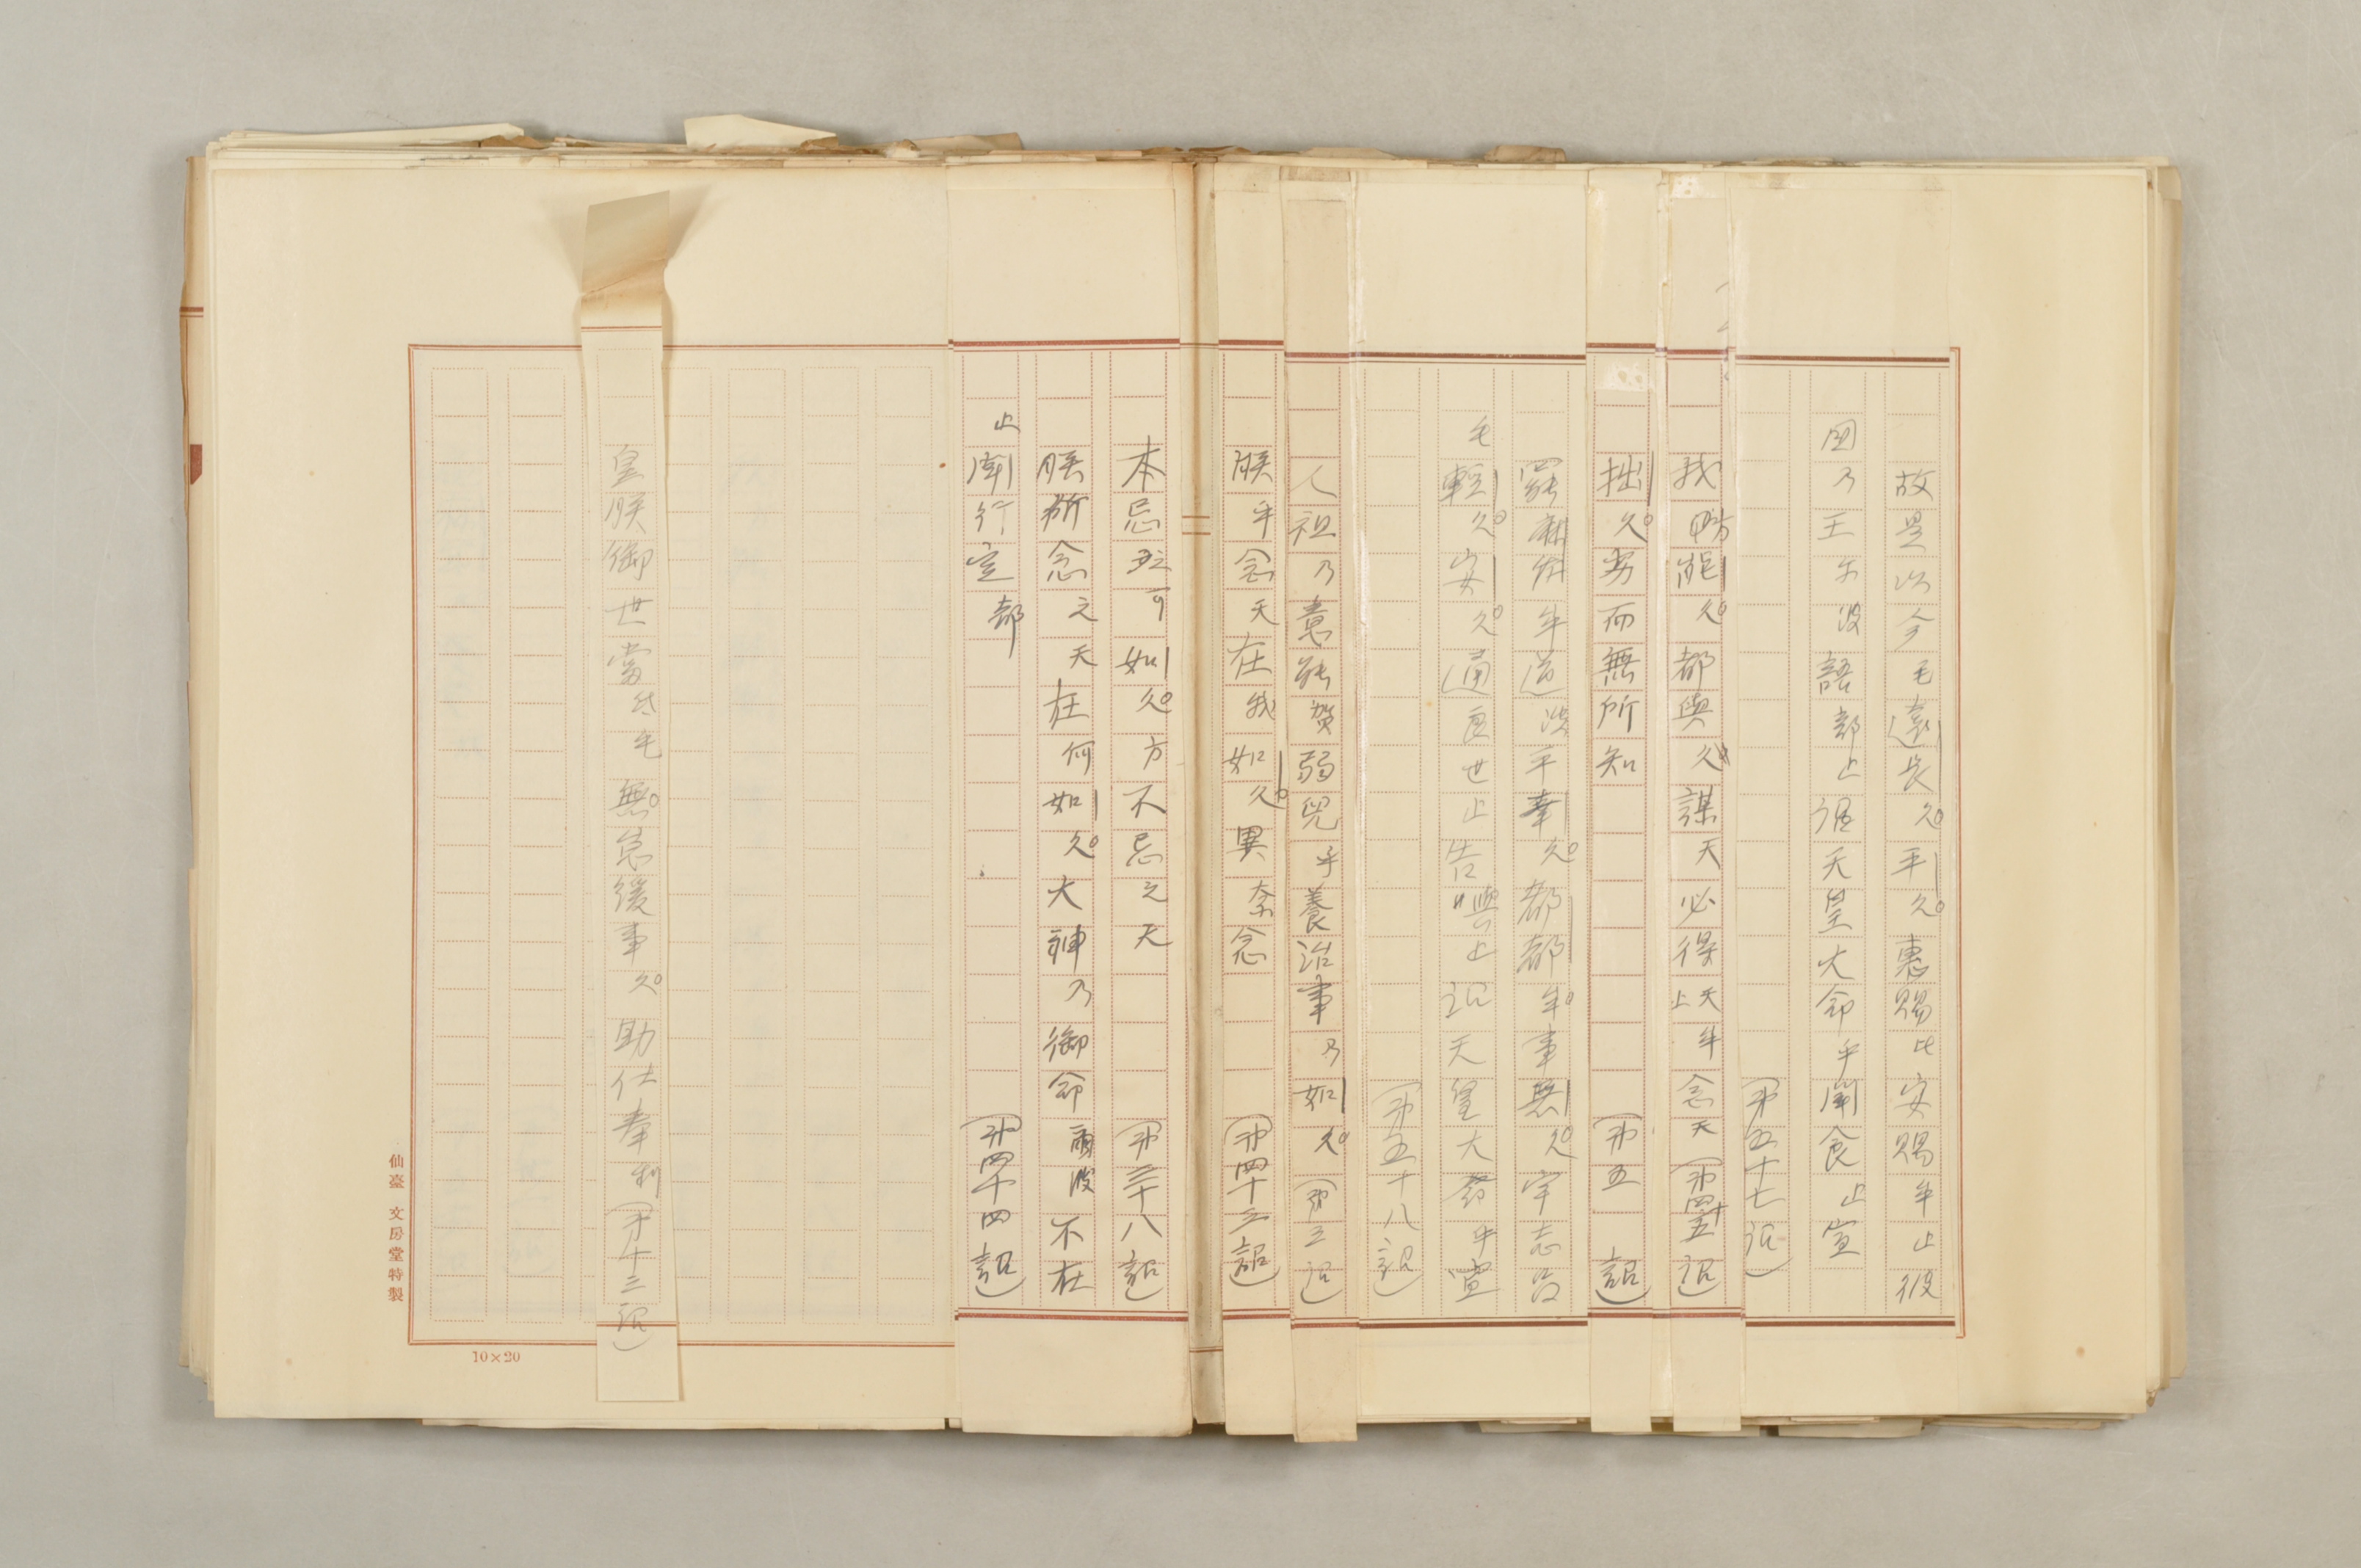 故是以今毛遠長久平久惠賜比安賜牟止彼
国乃王尓波語部止詔天皇大命乎聞食止宣
(第五十七詔)
我時能久都与久謀天必得天牟止念天(第四十五詔)
拙久劣而無所知 (第五詔)
罷麻佐牟道波平幸久都都牟事無久宇志呂
毛軽久安久通良世止告与止詔天皇大命乎宣
(第五十八詔)
人祖乃意能賀弱児乎養治事乃如久(第三詔)
朕乎念天在我如久異奈念 (第四十三詔)
本忌之可如久方不忌之天 (第三十八詔)
朕所念之天在何如久大神乃御命尓波不在
止聞行定都 (第四十四詔)
皇朕御世当弖毛無怠緩事久助仕奉利(第十三詔)
仙臺 文房堂特製
10×20